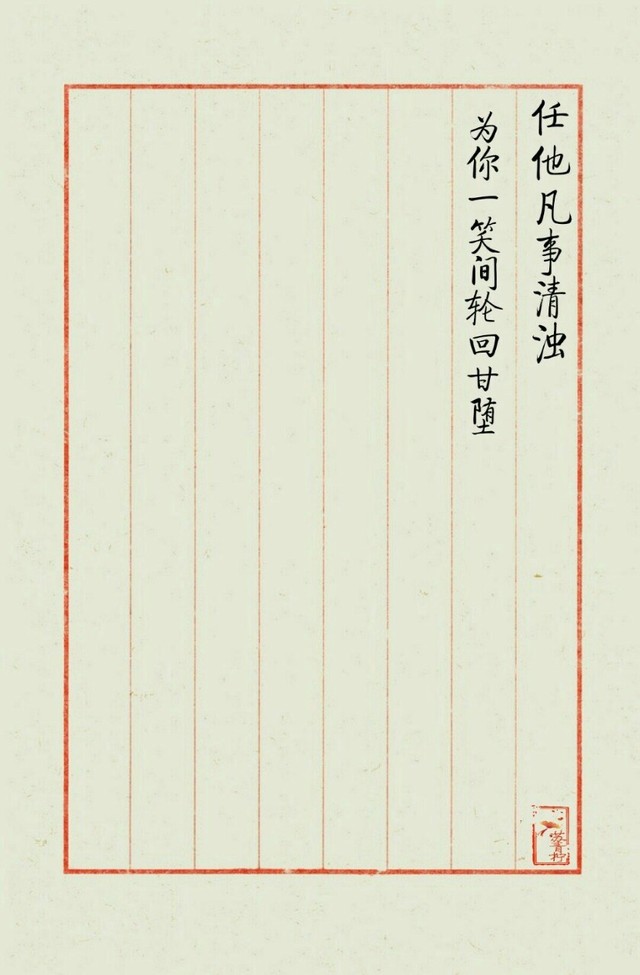 任他凡事清浊
为你一笑间轮回甘堕
苏青柠